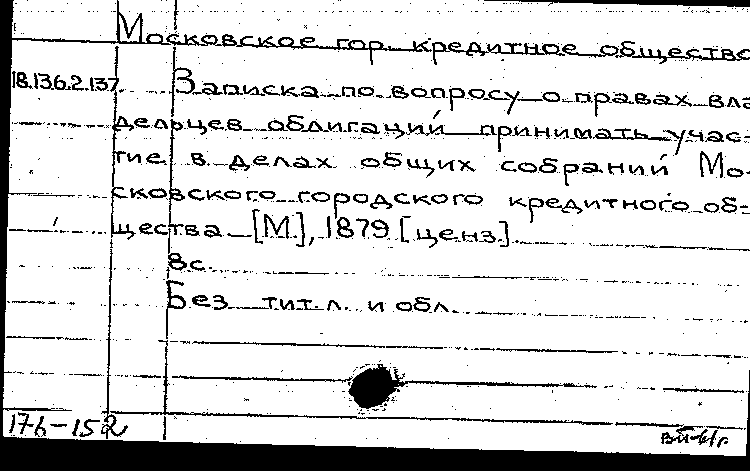 Московское гор. кредитное общество
18.136.2.137 Записка по вопросу о правах вла-
дельцев облигаций принимать учас-
тие в делах общих собраний Мо-
сковского городского кредитного об-
щества [М.], 1879 [ценз].
8с.
Без тит. л. и обл.
176-152